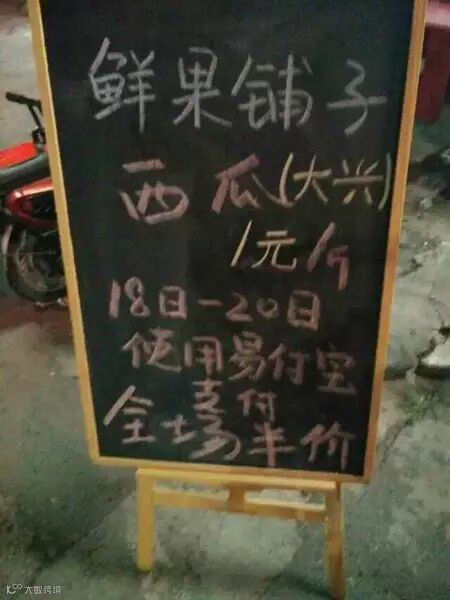 鲜果铺子
西瓜(大兴)
1元/斤
18日-20日
使用易付宝
支付
全场半价
大数跨境